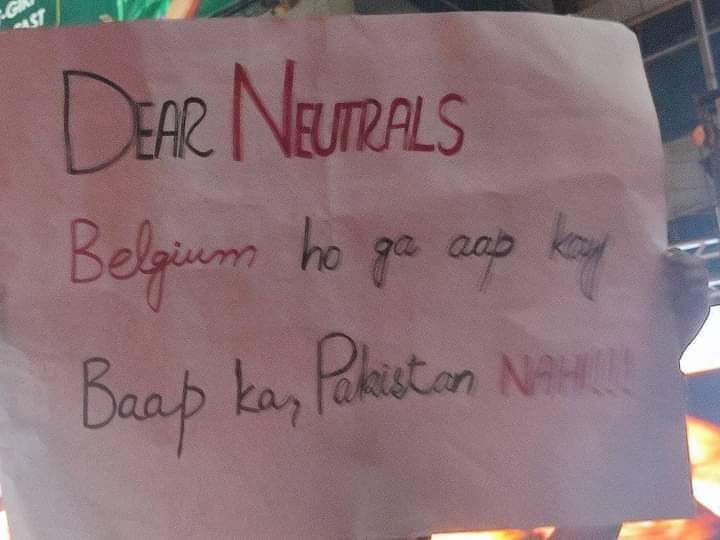 DEAR NEUTRALS
Belgium ho ga aap kay
Baap ka, Pakistan NAHI!!!